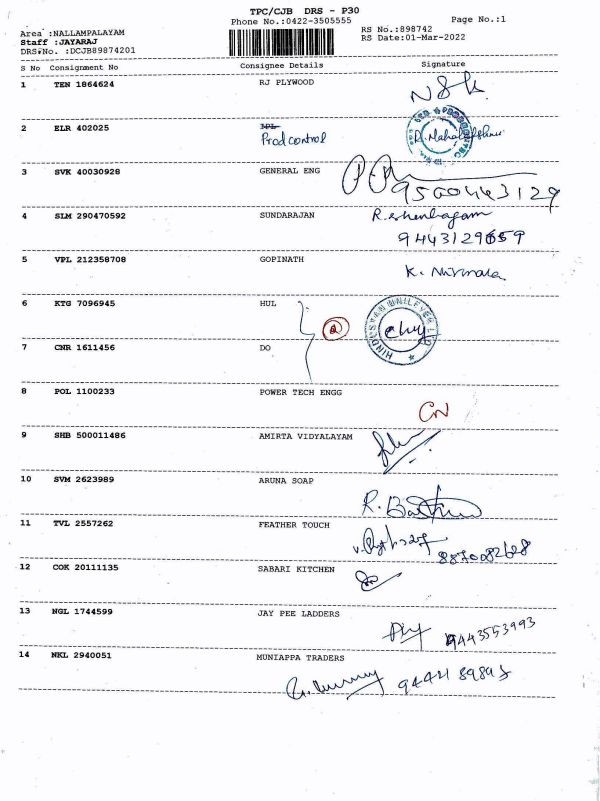 TPC/CJB DRS - P30
Phone No.:0422-3505555 Page No.:1
Area :NALLAMPALAYAM RS No.:898742
Staff :JAYARAJ RS Date:01-Mar-2022
DRS:No. :DCJB89874201
S No Consignment No Consignee Details Signature
1 TEN 1864624 RJ PLYWOOD
2 ELR 402025 Prodcontrol
3 SVK 40030928 GENERAL ENG
9500443129
4 SLM 290470592 SUNDARAJAN
5 VPL 212358708 GOPINATH K. Nirmala
6 KTG 7096945 HUL HINDUSTAN UNILEVER LTD
7 CNR 1611456 DO
8 POL 1100233 POWER TECH ENGG
CN
9 SHB 500011486 AMIRTA VIDYALAYAM
10 SVM 2623989 ARUNA SOAP
11 TVL 2557262 FEATHER TOUCH
12 COK 20111135 SABARI KITCHEN
13 NGL 1744599 JAY PEE LADDERS
9443553993
14 NKL 2940051 MUNIAPPA TRADERS